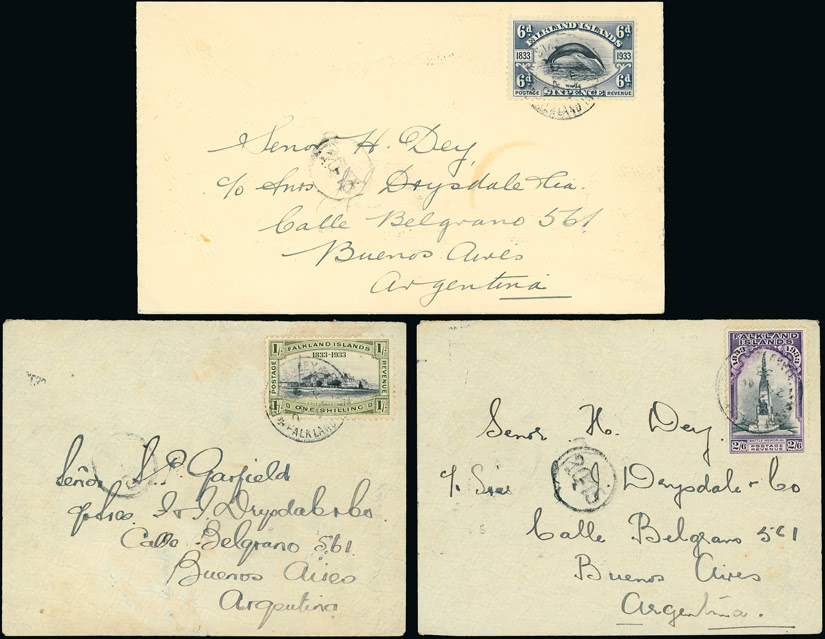 6d FALKLAND ISLANDS 6d
1833 1933
6d 6d
POSTAGE SIXPENCE REVENUE
FALKLAND
Senor H. Dey,
c/o Drysdale & Cia.
Calle Belgrano 561
Buenos Aires
Argentina
1/- FALKLAND ISLANDS 1/-
1833-1933
POSTAGE REVENUE
1/- ONE SHILLING 1/-
FALKLAND
Señor Garfield
J & J Drysdale & Co
Calle Belgrano 561
Buenos Aires
Argentina
FALKLAND
ISLANDS
1833 1933
BATTLE MEMORIAL
2/6 POSTAGE 2/6
REVENUE
Senor H. Dey.
c/o Sres Drysdale & Co
Calle Belgrano 561
Buenos Aires
Argentina.